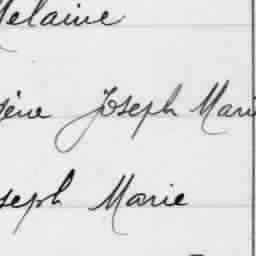 Melaine
gène Joseph Mari
seph Marie